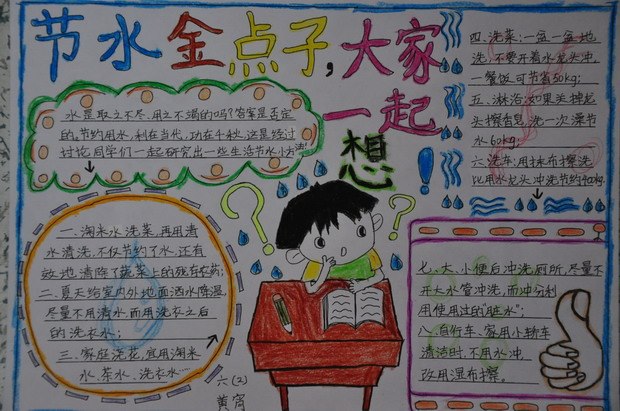 节水金点子,大家
一起
想!
水是取之不尽、用之不竭的吗?答案是否定
的,节约用水,利在当代,功在千秋,这是经过
讨论,同学们一起研究出一些生活节水小方法
一、淘米水洗菜,再用清
水清洗,不仅节约了水,还有
效地清除了蔬菜上的残存农药;
二、夏天给室内外地面洒水降温,
尽量不用清水,而用洗衣之后
的洗衣水;
三、家庭浇花,宜用淘米
水、茶水、洗衣水……
六(2)
四、洗菜:一盆一盆地
洗,不要开着水龙头冲,
一餐饭可节省50kg;
五、淋浴:如果关掉龙
头擦香皂,洗一次澡节
水60kg.
六、洗车:用抹布擦洗
比用水龙头冲洗节约40kg.
七、大、小便后冲洗厕所,尽量不
开大水管冲洗,而冲分利
用使用过的"脏水";
八、自行车、家用小轿车
清洁时,不用水冲,
改用湿布擦。